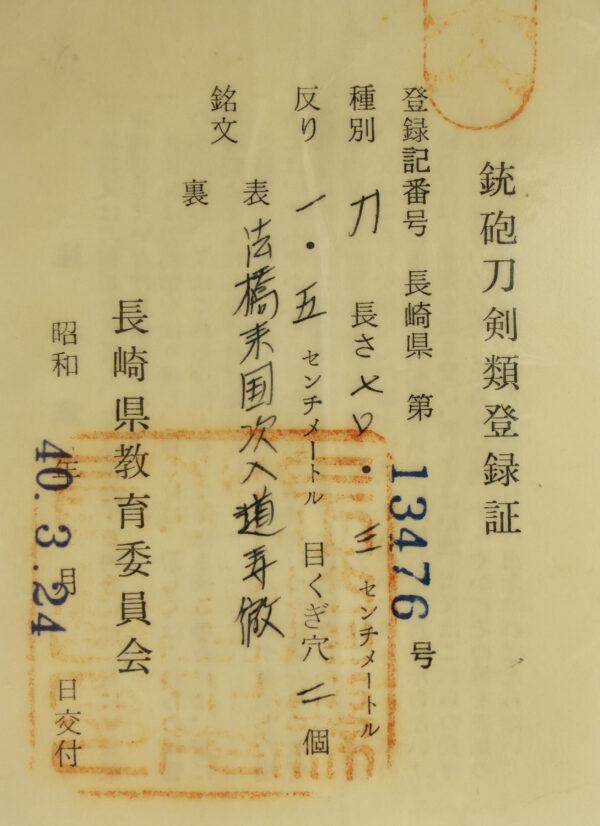 銃砲刀剣類登録証
登録記番号 長崎県 第 13476 号
種別 刀 長さ 七〇・三 センチメートル
反り 一・五 センチメートル 目くぎ穴 二 個
銘文 表 法橋来国次入道寿
裏
長崎県教育委員会
昭和 40年 3.月 24 日交付